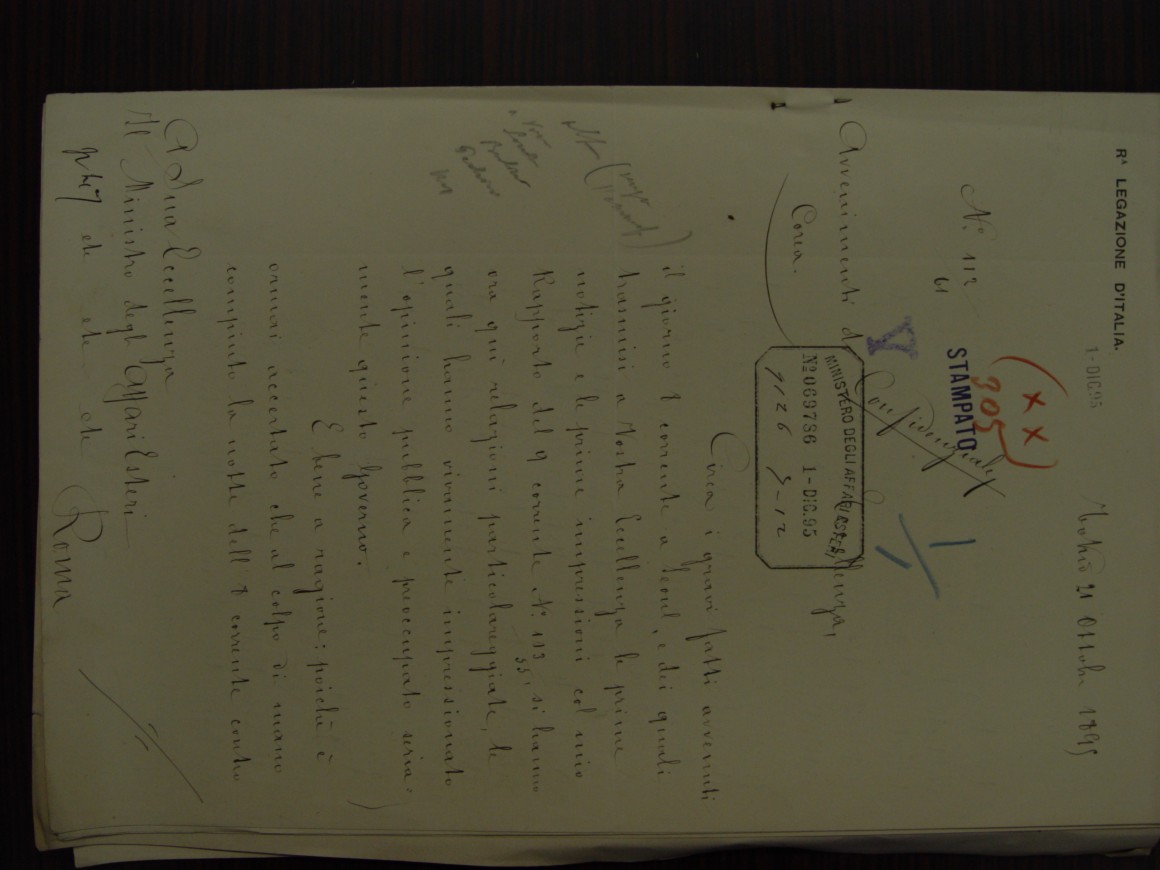 Rᴬ LEGAZIONE D'ITALIA.
1-DIC.95
Tokio 21 Ottobre 1895
(x x)
305
N.º 112
61
STAMPATO
Confidenziale
Avvenimenti di
Corea.
MINISTERO DEGLI AFFARI ESTERI
Nº 069736 1-DIC.95
9126 5-12
Circa i gravi fatti avvenuti
il giorno 8 corrente a Seoul, e dei quali
trasmisi a Vostra Eccellenza le prime
notizie e le prime impressioni col mio
Rapporto del 9 corrente N.º 113
55, si hanno
ora qui relazioni particolareggiate, le
quali hanno vivamente impressionato
l'opinione pubblica e preoccupato seria-
mente questo Governo.
E bene a ragione: poichè è
ormai accertato che al colpo di mano
compiuto la notte dell'8 corrente contro
A Sua Eccellenza
Il Ministro degli Affari Esteri
etc etc etc
Roma